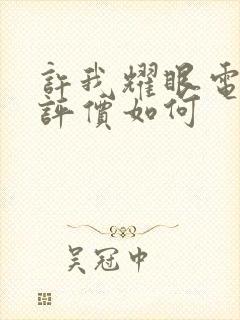 許我耀眼電
評價如何
吴冠中